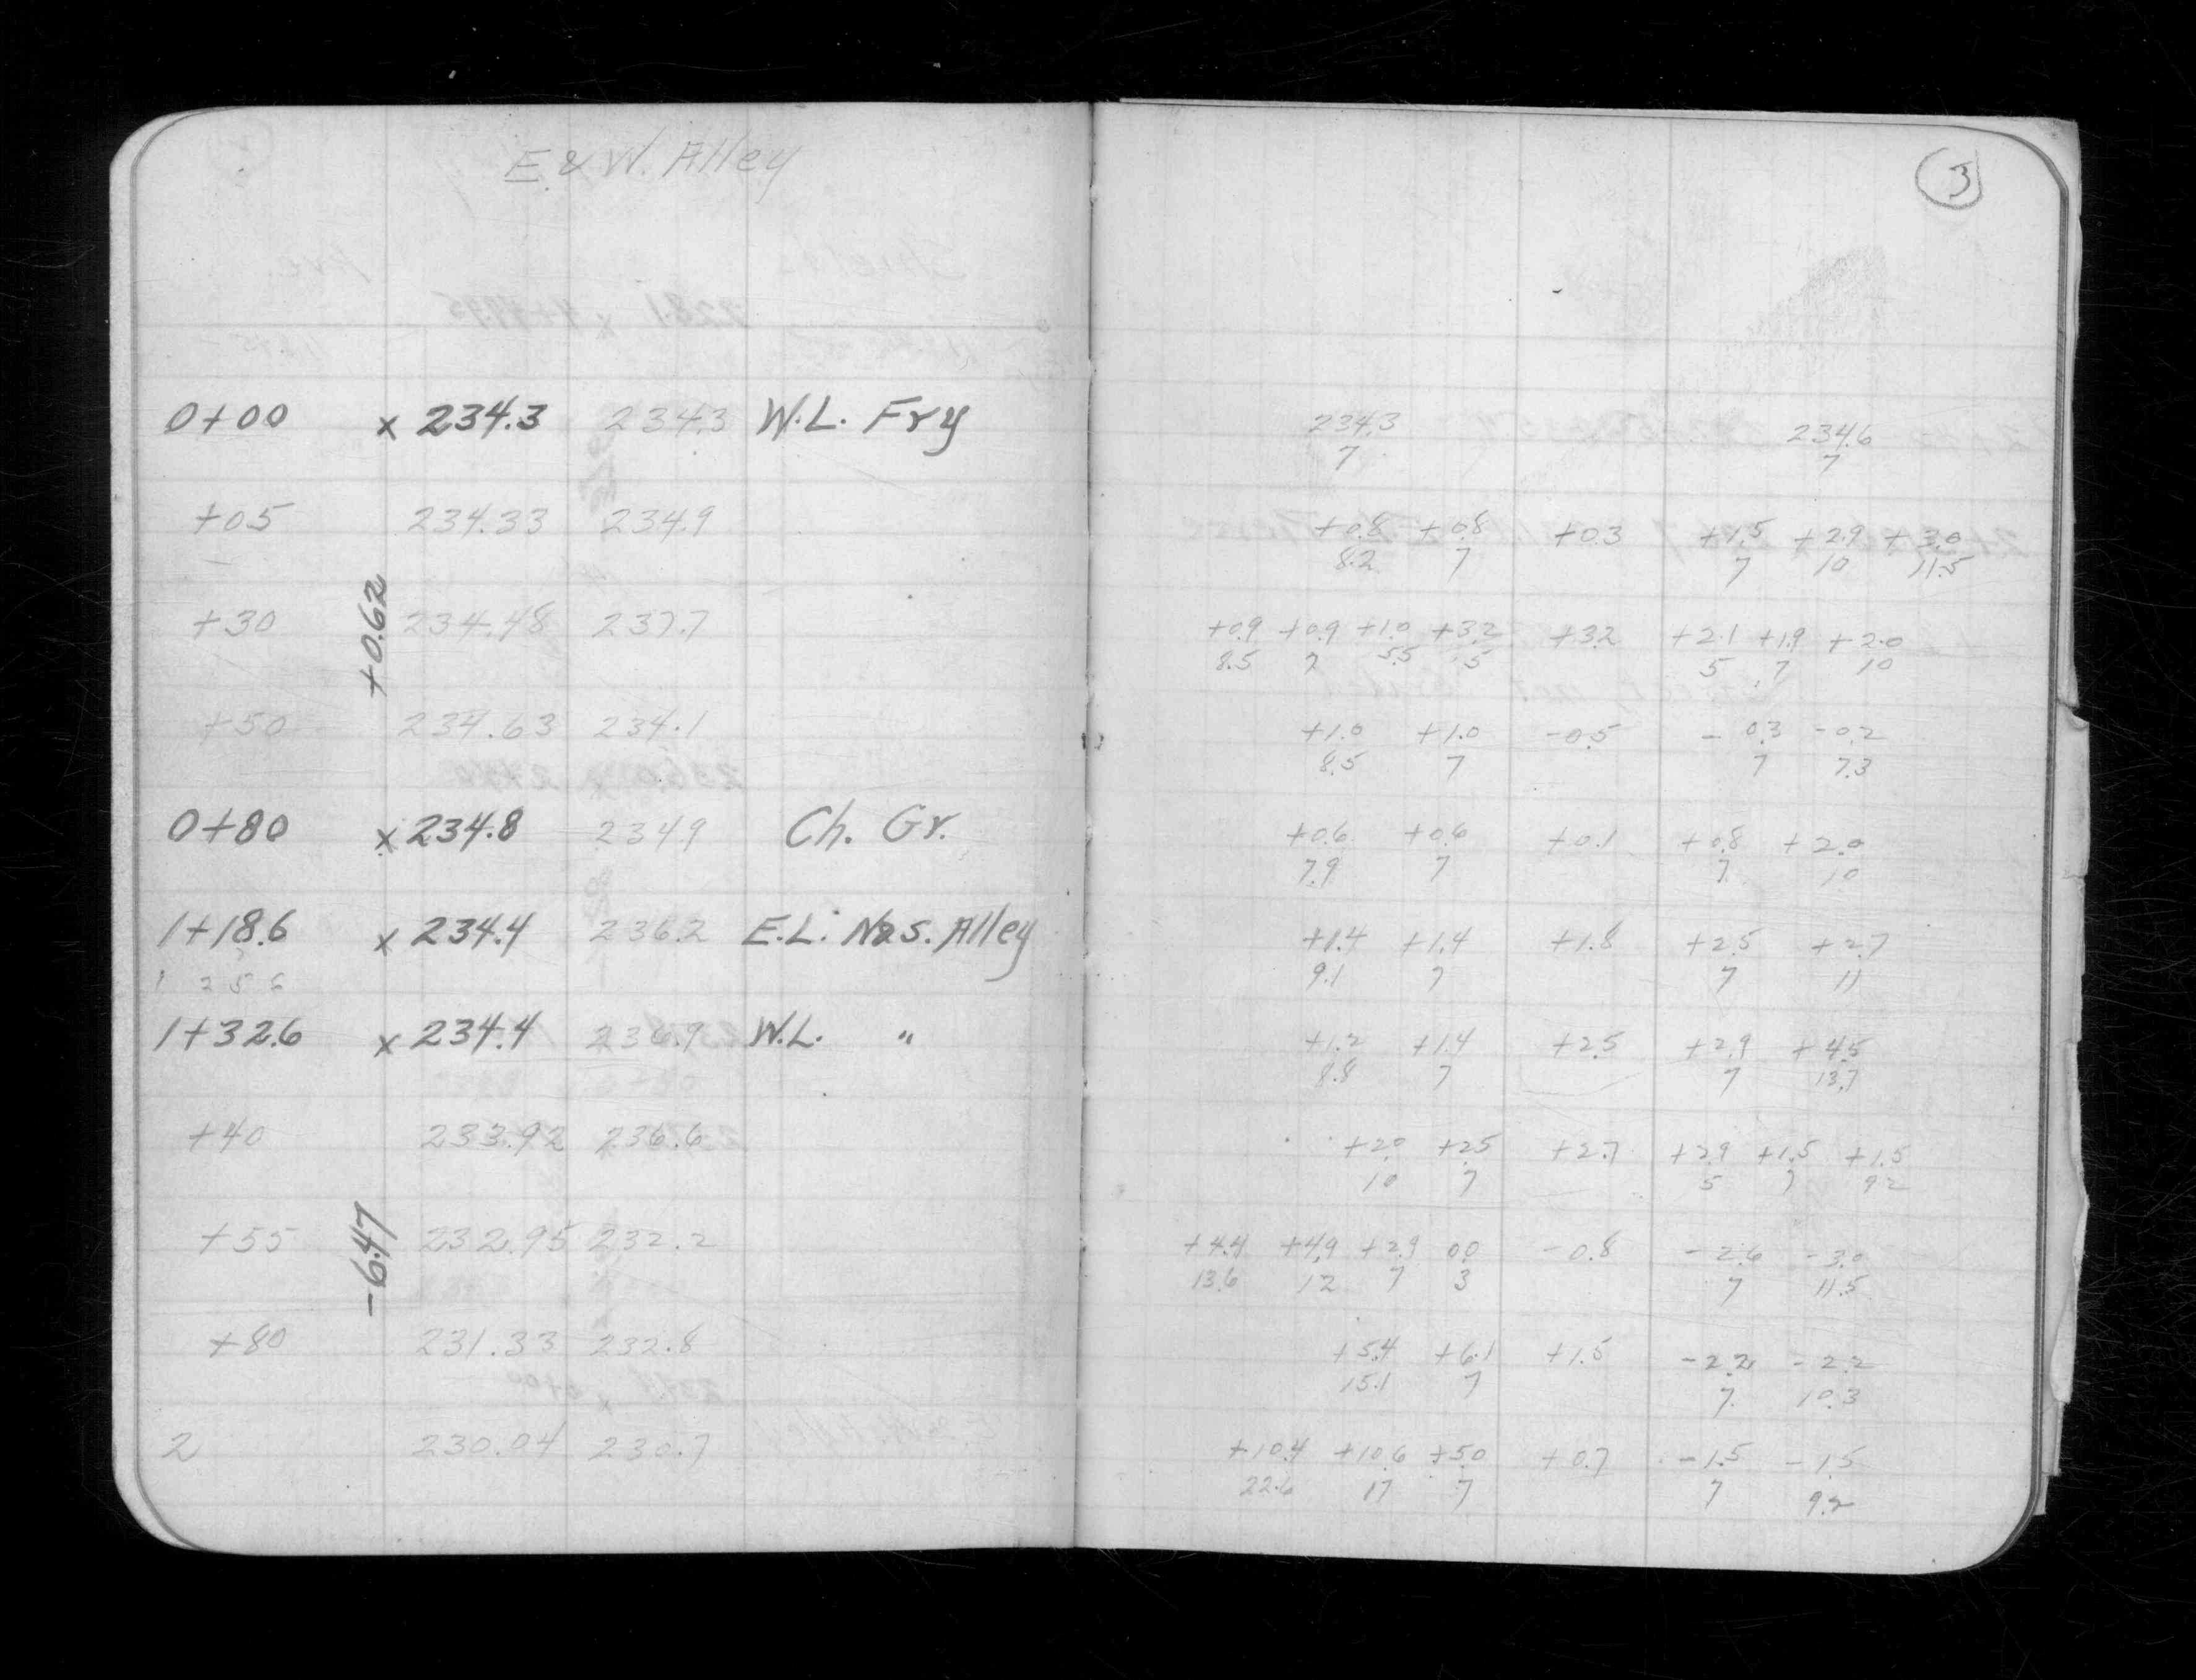 E. & W. Alley
3
0+00 x 234.3 234.3 W.L. Fry 234.3 234.6
7 7
+05 234.33 234.9 +0.8 +0.8 +0.3 +1.5 +2.9 +3.0
8.2 7 7 10 11.5
+30 234.48 237.7 +0.9 +0.9 +1.0 +3.2 +3.2 +2.1 +1.9 +2.0
8.5 7 5.5 5 5 7 10
+0.62
+50 234.63 234.1 +1.0 +1.0 -0.5 -0.3 -0.2
8.5 7 7 7.3
0+80 x 234.8 234.9 Ch. Gr. +0.6 +0.6 +0.1 +0.8 +2.0
7.9 7 7 10
1+18.6 x 234.4 236.2 E.L. N&S. Alley +1.4 +1.4 +1.8 +2.5 +2.7
1 25 6 9.1 7 7 11
1+32.6 x 234.4 236.9 W.L. " +1.2 +1.4 +2.5 +2.9 +4.5
8.8 7 7 13.7
+40 233.92 236.6 +2.0 +2.5 +2.7 +2.9 +1.5 +1.5
10 7 5 7 9.2
-6.47
+55 232.95 232.2 +4.4 +4.9 +2.9 0.0 -0.8 -2.6 -3.0
13.6 12 7 3 7 11.5
+80 231.33 232.8 +5.4 +6.1 +1.5 -2.2 -2.2
15.1 7 7 10.3
2 230.04 230.7 +10.4 +10.6 +5.0 +0.7 -1.5 -1.5
22.6 17 7 7 9.2